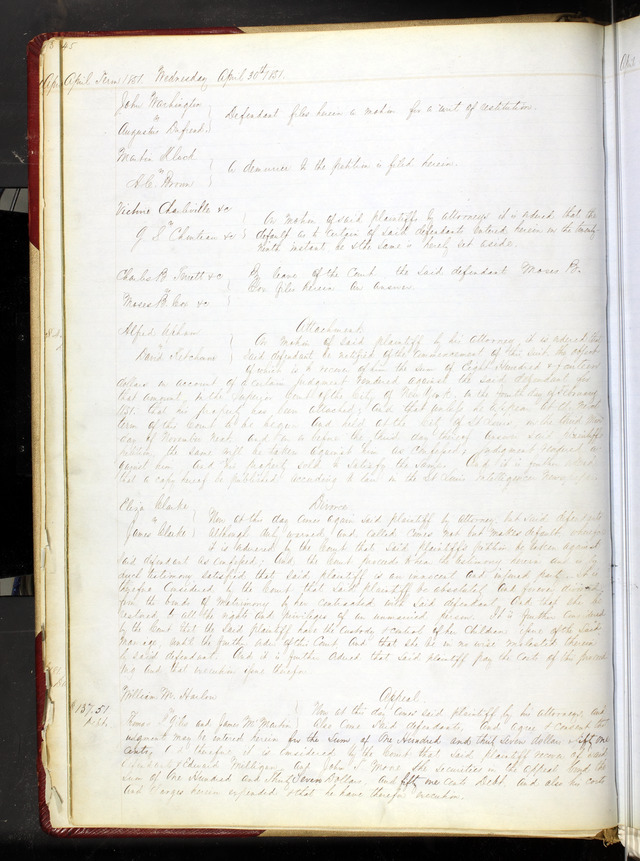 45
April Term 1851. Wednesday April 30th 1851.
John Washington
vs
Augustus Dufrend
Defendant files herein a motion for a writ of restitution.
Martin
vs
Brown
A demurrer to the petition is filed herein.
Victoire Charleville &c
vs
Chouteau &c
On motion of said plaintiffs by attorneys it is ordered that the
default as to certain of said defendants entered herein on the twenty
instant be & the same is hereby set aside.
Charles B.
vs
Moses B. &c
By leave of the Court the said defendant Moses B.
files herein an answer.
Alfred
vs
David Ketcham
Attachment
On motion of said plaintiff by his attorney, it is ordered that
said defendant be notified of the commencement of this suit the object
of which is to recover of him the sum of Eight Hundred &
dollars on account of a certain judgment rendered against the said defendant for
that amount, in the Superior Court of the City of New York, on the fourth day of February
1851. that his property has been attached, and that unless he appear at the next
term of this Court to be begun and held at the City of St Louis, on the third Monday
day of November next, and on or before the third day thereof answer said plaintiffs
petition, the same will be taken against him as confessed, judgment rendered
against him, and his property sold to satisfy the same. And it is further ordered
that a copy hereof be published according to law in the St Louis Intelligencer
Eliza Clarke
vs
James Clarke
Divorce
Now at this day comes again said plaintiff by attorney, but said defendant
although duly warned and called comes not but makes default, whereupon
it is ordered by the Court that said plaintiffs petition be taken against
said defendant as confessed, And the Court proceeds to hear the testimony herein and is by
such testimony satisfied that said plaintiff is an innocent and injured party. It is
therefore considered by the Court that said plaintiff be absolutely and forever divorced
from the bonds of matrimony by her contracted with said defendant, And that she be
restored to all the rights and privileges of an unmarried person. It is further considered
by the Court that the said plaintiff have the custody & control of her children issue of the said
marriage, until the further order of the Court and that she be in no wise
to said defendant. And it is further ordered that said plaintiff pay the costs of this proceed
ing and that execution issue therefor.
$137.51
Debt
William M. Harlow
vs
Thomas and James M. Martin
Appeal
Now at this day comes said plaintiff by his attorneys, and
also come said defendants, and agree & consent that
judgment may be entered herein for the sum of One Hundred and thirty seven dollars & fifty one
cents, It is therefore it is considered by the Court that said plaintiff recover of said
defendants & Edward Milligan and John J. the securities in the appeal bond the
sum of One Hundred and thirty Seven Dollars and fifty one cents debt, and also his costs
and charges herein expended & that he have thereof execution.